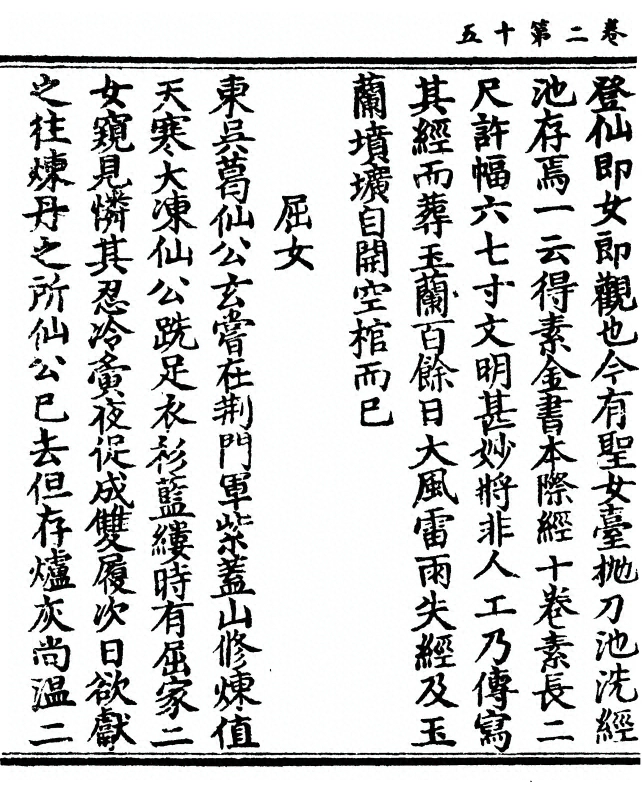 卷二第十五
登仙即女郎觀也今有聖女臺抛刀池洗經
池存焉一云得素金書本際經十卷素長二
尺許幅六七寸文明甚妙將非人工乃傳寫
其經而葬玉蘭百餘日大風雷雨失經及玉
蘭墳壙自開空棺而已
屈女
東吳葛仙公玄嘗在荆門軍紫蓋山修煉值
天寒大凍仙公跣足衣衫藍縷時有屈家二
女窺見憐其忍冷夤夜促成雙履次日欲獻
之往煉丹之所仙公已去但存爐灰尚溫二